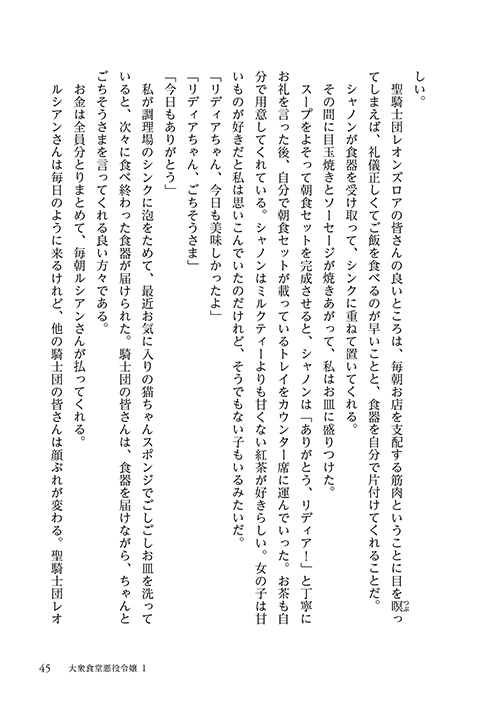 しい。
　聖騎士団レオンズロアの皆さんの良いところは、毎朝お店を支配する筋肉ということに目を瞑っ
つぶ
てしまえば、礼儀正しくてご飯を食べるのが早いことと、食器を自分で片付けてくれることだ。
　シャノンが食器を受け取って、シンクに重ねて置いてくれる。
　その間に目玉焼きとソーセージが焼きあがって、私はお皿に盛りつけた。
　スープをよそって朝食セットを完成させると、シャノンは「ありがとう、リディア！」と丁寧に
お礼を言った後、自分で朝食セットが載っているトレイをカウンター席に運んでいった。お茶も自
分で用意してくれている。シャノンはミルクティーよりも甘くない紅茶が好きらしい。女の子は甘
いものが好きだと私は思いこんでいたのだけれど、そうでもない子もいるみたいだ。
「リディアちゃん、今日も美味しかったよ」
「リディアちゃん、ごちそうさま」
「今日もありがとう」
　私が調理場のシンクに泡をためて、最近お気に入りの猫ちゃんスポンジでごしごしお皿を洗って
いると、次々に食べ終わった食器が届けられた。騎士団の皆さんは、食器を届けながら、ちゃんと
ごちそうさまを言ってくれる良い方々である。
　お金は全員分とりまとめて、毎朝ルシアンさんが払ってくれる。
　ルシアンさんは毎日のように来るけれど、他の騎士団の皆さんは顔ぶれが変わる。聖騎士団レオ
45　大衆食堂悪役令嬢 1